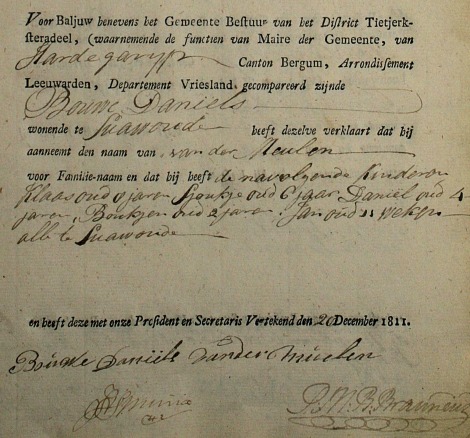 Voor Baljuw benevens het Gemeente Bestuur van het District Tietjerk-
steradeel, (waarnemende de functien van Maire der Gemeente, van
Hardegaryp Canton Bergum, Arrondissement
Leeuwarden, Departement Vriesland, gecompareerd zijnde
Bouwe Daniels
wonende te Suawoude heeft dezelve verklaart dat hij
aanneemt den naam van van der Meulen
voor Familie-naam en dat hij heeft de navolgende kinderen
Klaas oud 9 jaren Sjoukje oud 6 jaar Daniel oud 4
jaren, Boukjen oud 2 jaren Jan oud 11 weken
alle te Suawoude
en heeft deze met onze President en Secretaris Vertekend den 20 December 1811.
Bouwe Daniels van der Meulen